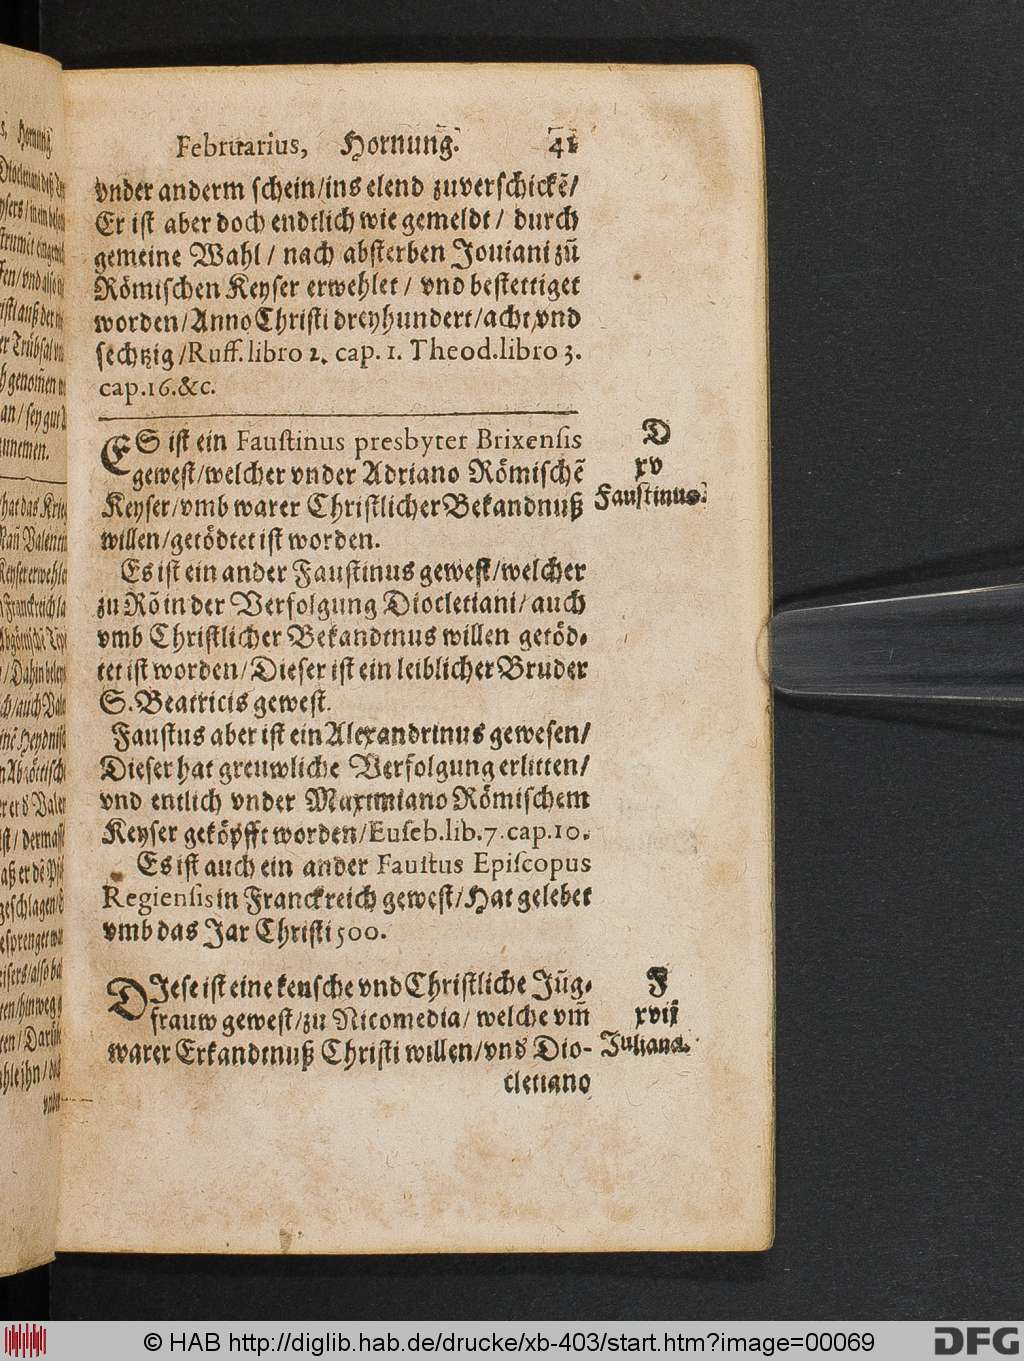 Februarius, Hornung. 41
vnder anderm schein/ins elend zuverschickẽ/
Er ist aber doch endtlich wie gemeldt/ durch
gemeine Wahl/ nach absterben Jouiani zũ
Römischen Keyser erwehlet/ vnd bestettiget
worden/Anno Christi dreyhundert/acht/vnd
sechtzig/Ruff. libro 2. cap. 1. Theod. libro 3.
cap. 16. &c.
ES ist ein Faustinus presbyter Brixensis
gewest/welcher vnder Adriano Römischẽ
Keyser/vmb warer Christlicher Bekandnuß
willen/getödtet ist worden.
Es ist ein ander Faustinus gewest/welcher
zu Rõ in der Verfolgung Diocletiani/auch
vmb Christlicher Bekandtnus willen getöd-
tet ist worden/Dieser ist ein leiblicher Bruder
S. Beatricis gewest.
Faustus aber ist ein Alexandrinus gewesen/
Dieser hat greuwliche Verfolgung erlitten/
vnd entlich vnder Maximiano Römischem
Keyser geköpfft worden/Euseb. lib. 7. cap. 10.
Es ist auch ein ander Faustus Episcopus
Regiensis in Franckreich gewest/Hat gelebet
vmb das Jar Christi 500.
D
xv
Faustinus.
DIese ist eine keusche vnd Christliche Jũg-
frauw gewest/zu Nicomedia/ welche vm̃
warer Erkandtnuß Christi willen/vnd Dio-
cletiano
F
xvij
Juliana.
© HAB http://diglib.hab.de/drucke/xb-403/start.htm?image=00069
DFG